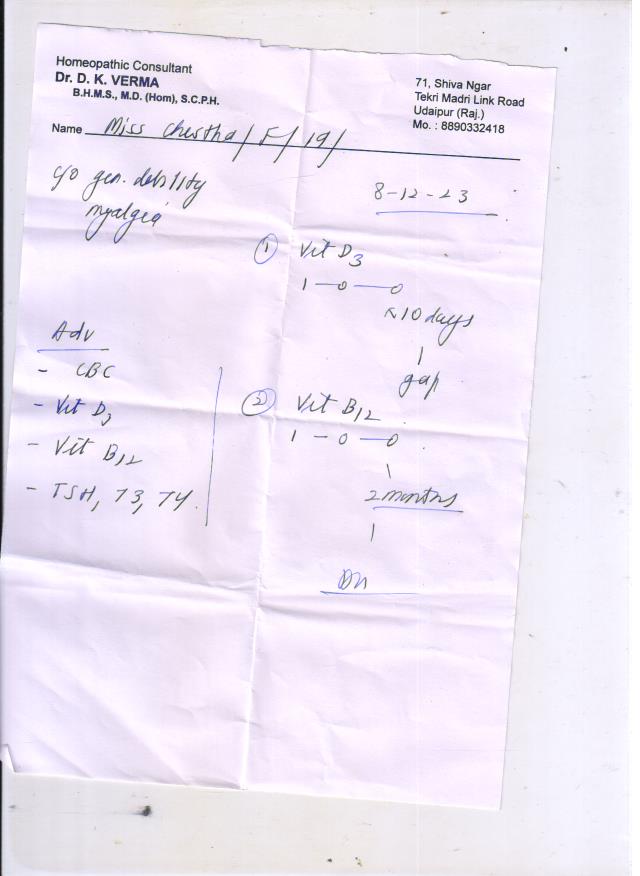 Homeopathic Consultant
Dr. D. K. VERMA
B.H.M.S., M.D. (Hom), S.C.P.H.
71, Shiva Ngar
Tekri Madri Link Road
Udaipur (Raj.)
Mo. : 8890332418
Name Miss / F / 19 /
c/o gen. debility
myalgia
8-12-23
① Vit D3
1 — 0 — 0
x 10 days
gap
② Vit B12
1 — 0 — 0
2 months
Adv
- CBC
- Vit D3
- Vit B12
- TSH, T3, T4.